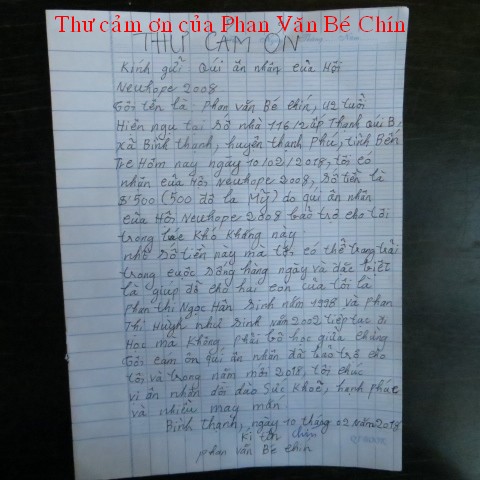 Thư cảm ơn của Phan Văn Bé Chín
THƯ CẢM ƠN
Kính gửi Qúi ân nhân của Hội
Newhope 2008
Tôi tên là Phan Văn Bé Chín, 42 tuổi
Hiện ngụ tại Số nhà 116/2 ấp Thạnh Qúi B,
xã Bình thạnh, huyện thạnh Phú, tỉnh Bến
Tre Hôm nay ngày 10/02/2018, tôi có
nhận của Hội Newhope 2008, Số tiền là
$500 (500 đô la Mỹ) do qúi ân nhân
của Hội Newhope 2008 bảo trợ cho tôi
trong lúc Khó Khăng này
nhờ số tiền này mà tôi có thể trang trải
trong cuộc sống hàng ngày và đặc biệt
là giúp đỡ cho hai con của tôi là
Phan thị Ngọc Hân Sinh năm 1998 và Phan
Thị Huỳnh như Sinh Năm 2002 tiếp tục đi
Học mà Không phải bỏ học giữa chừng
Tôi cám ơn qúi ân nhân đã bảo trợ cho
tôi, và trong năm mới 2018, tôi chúc
vị ân nhân dồi dào Sức Khoẻ, hạnh phúc
và nhiều may mắn
Bình thạnh, ngày 10 tháng 02 Năm 2018
Kí tên Chín
phan văn Bé chín